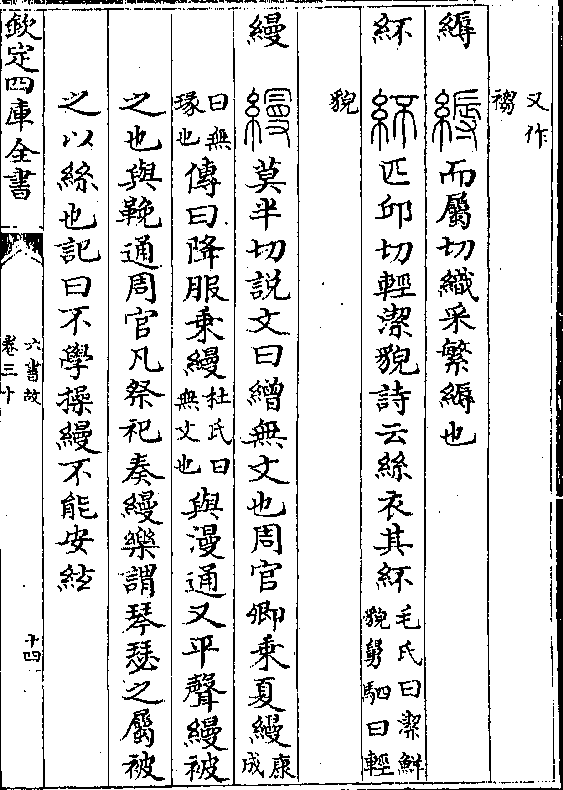 又作
縟 而屬切織采繁縟也
紑 匹邱切輕潔貌詩云絲衣其紑毛氏曰潔鮮貌舅駟曰輕
貌
縵 莫半切説文曰繒無文也周官卿乘夏縵康成
曰無瑑也傳曰降服乘縵杜氏曰無文也與漫通又平聲縵被
之也與鞔通周官凡祭祀奏縵樂謂琴瑟之屬被
之以絲也記曰不學操縵不能安絃
欽定四庫全書
六書故
卷三十
十四